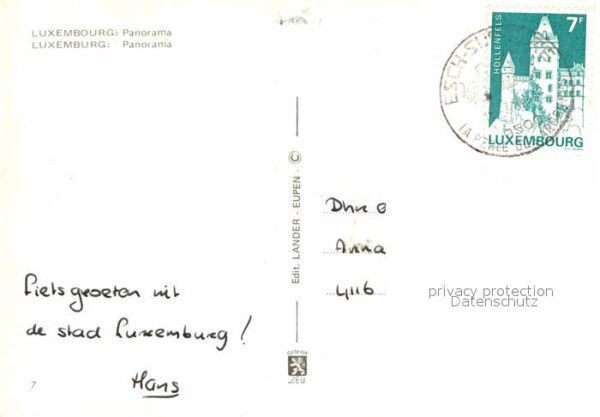 LUXEMBOURG: Panorama
LUXEMBURG: Panorama
HOLLENFELS
7F
LUXEMBOURG
ESCH-S
LA PERLE DE
Edit. LANDER - EUPEN - ©
Dhr
Anna
4116
privacy protection
Datenschutz
Fietsgroeten uit
de stad Luxemburg!
Hans
7